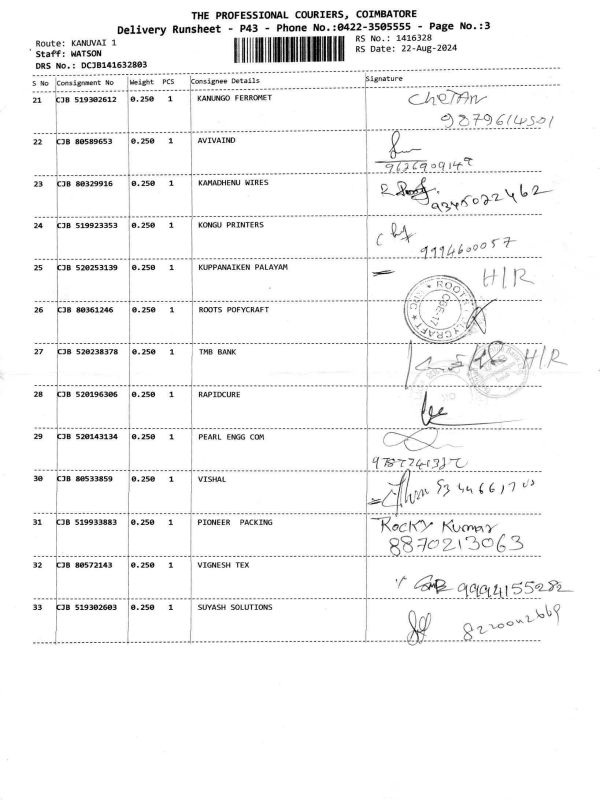 THE PROFESSIONAL COURIERS, COIMBATORE
Delivery Runsheet - P43 - Phone No.:0422-3505555 - Page No.:3
Route: KANUVAI 1
RS No.: 1416328
Staff: WATSON
RS Date: 22-Aug-2024
DRS No.: DCJB141632803
S No Consignment No Weight PCS Consignee Details Signature
21 CJB 519302612 0.250 1 KANUNGO FERROMET CHETAN
9879614501
22 CJB 80589653 0.250 1 AVIVAIND
23 CJB 80329916 0.250 1 KAMADHENU WIRES
9345022462
24 CJB 519923353 0.250 1 KONGU PRINTERS
9994600057
25 CJB 520253139 0.250 1 KUPPANAIKEN PALAYAM H/R
26 CJB 80361246 0.250 1 ROOTS POFYCRAFT
27 CJB 520238378 0.250 1 TMB BANK H/R
28 CJB 520196306 0.250 1 RAPIDCURE
29 CJB 520143134 0.250 1 PEARL ENGG COM
30 CJB 80533859 0.250 1 VISHAL
31 CJB 519933883 0.250 1 PIONEER PACKING Rocky Kumar
8870213063
32 CJB 80572143 0.250 1 VIGNESH TEX
9994155282
33 CJB 519302603 0.250 1 SUYASH SOLUTIONS